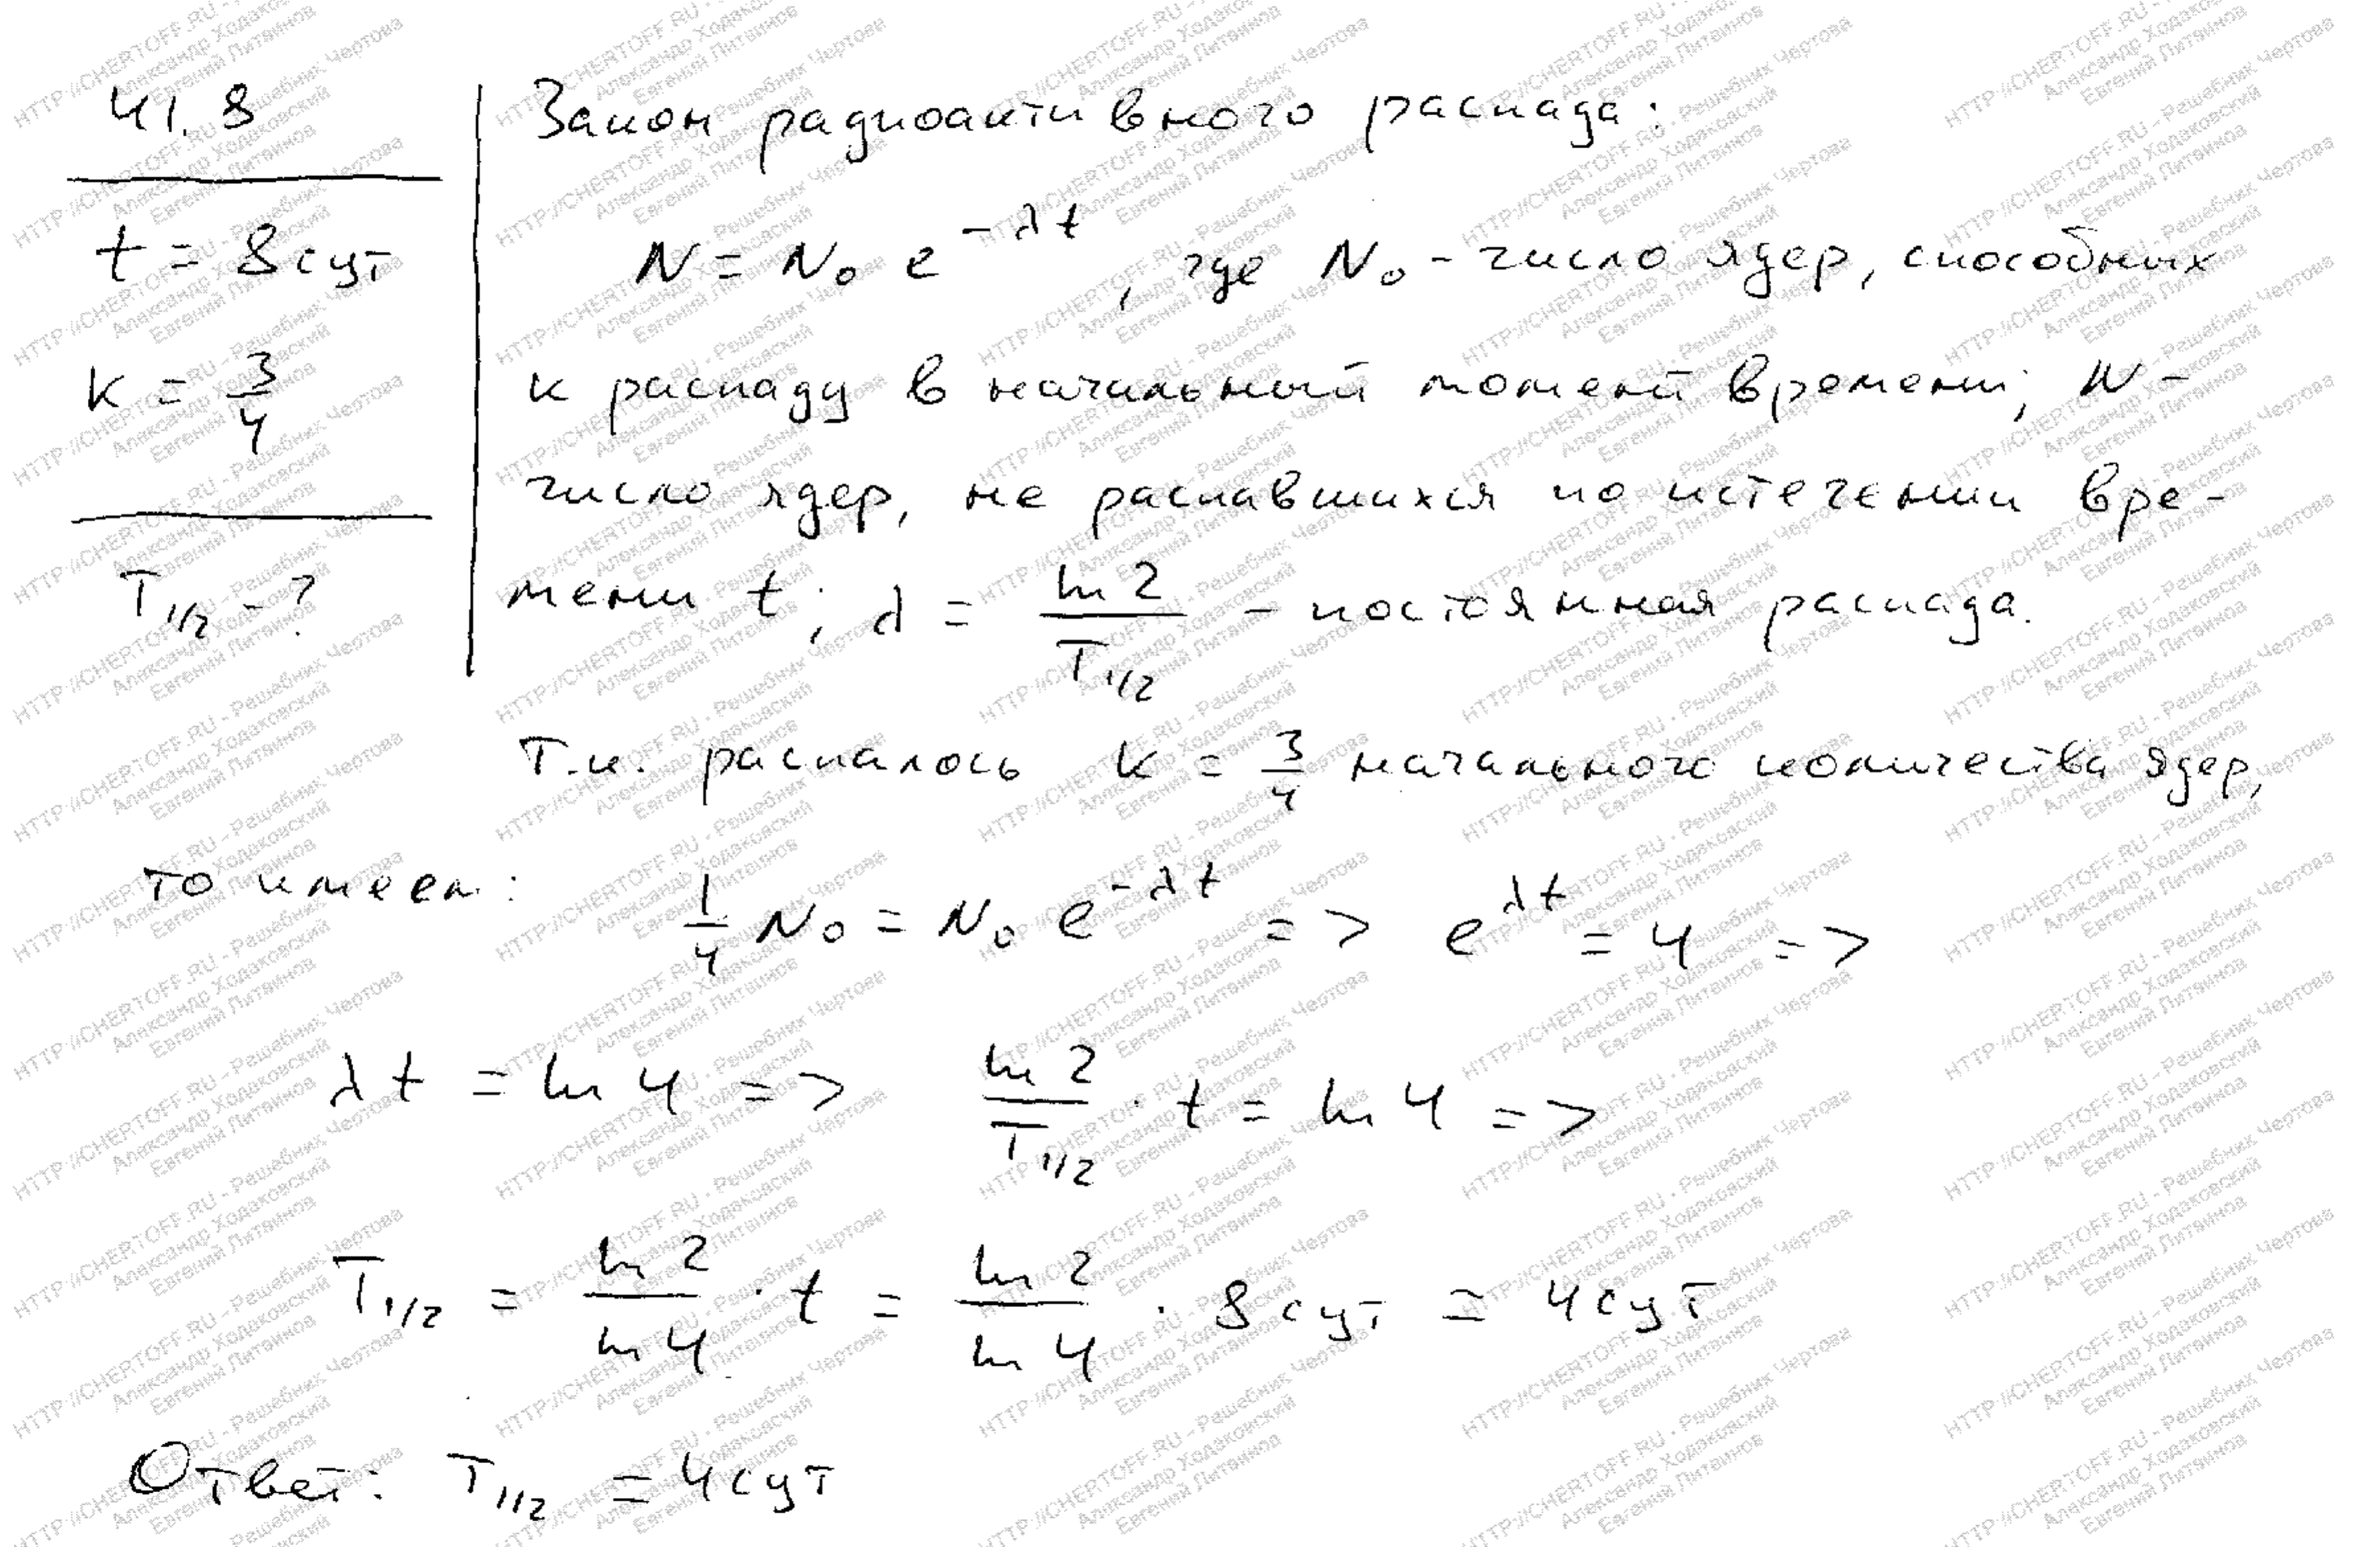 41.8
t = 8 сут
k = 3/4
T1/2 - ?
Закон радиоактивного распада:
N = N0 e^-λt, где N0 - число ядер, способных
к распаду в начальный момент времени; N -
число ядер, не распавшихся по истечении вре-
мени t; λ = ln 2 / T1/2 - постоянная распада.
Т.к. распалось k = 3/4 начального количества ядер,
то имеем: 1/4 N0 = N0 e^-λt => e^λt = 4 =>
λt = ln 4 => ln 2 / T1/2 · t = ln 4 =>
T1/2 = ln 2 / ln 4 · t = ln 2 / ln 4 · 8 сут = 4 сут
Ответ: T1/2 = 4 сут
HTTP://CHERTOFF.RU - Решебник Чертова
Александр Ходаковский
Евгений Литвинов